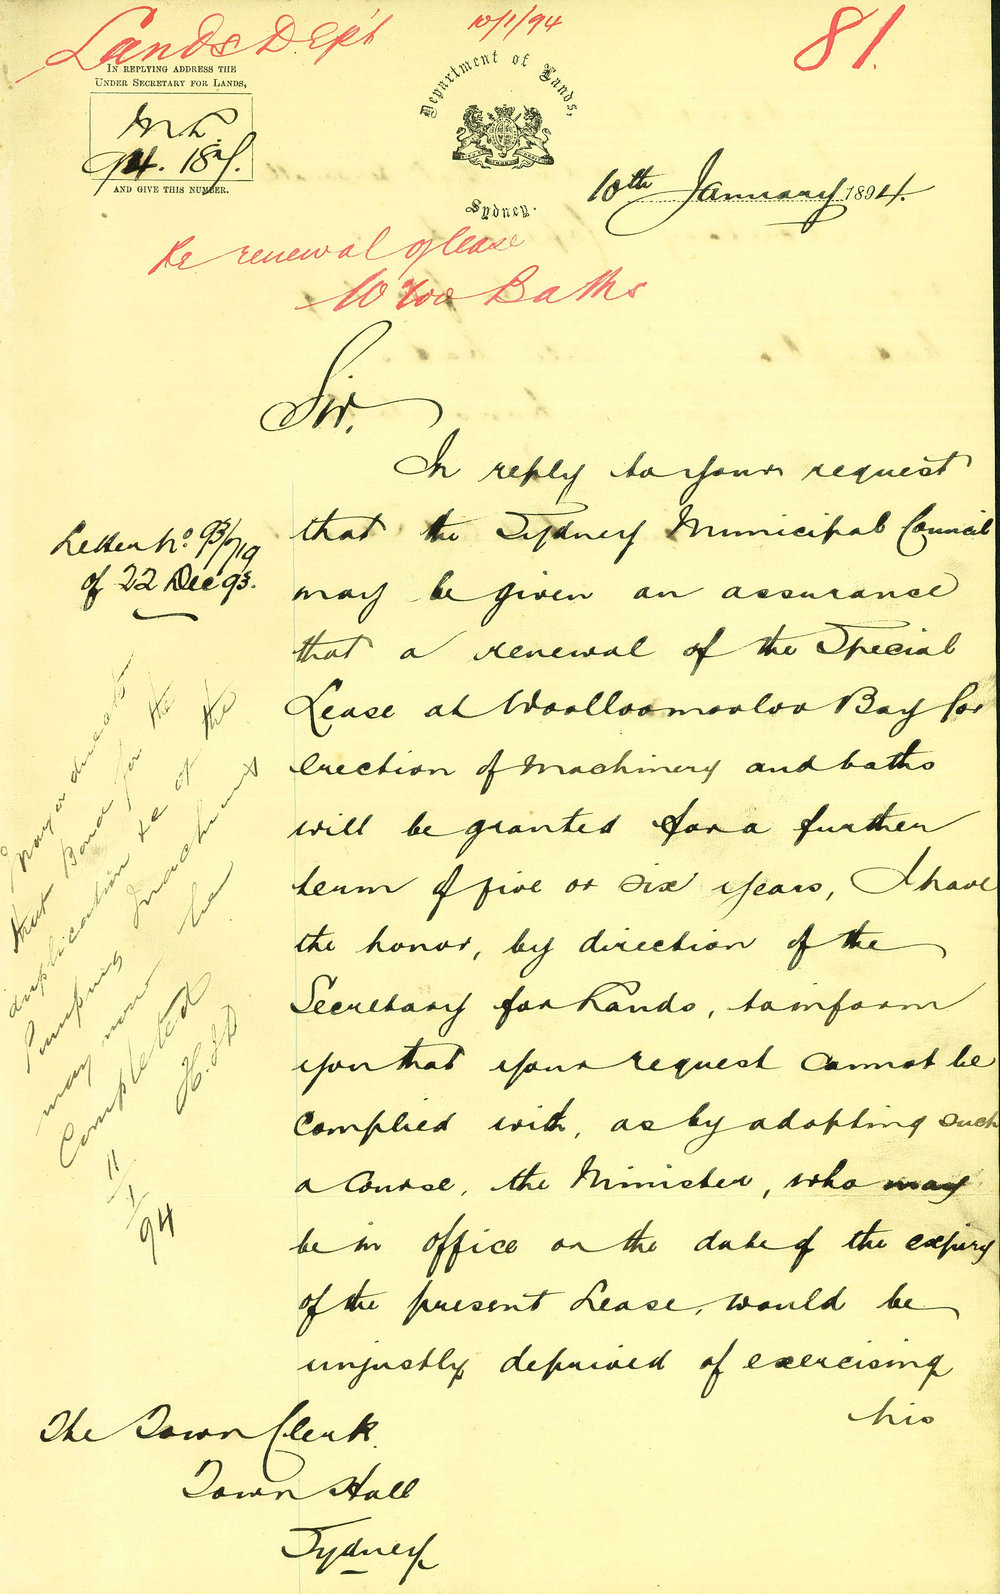 Lands Dep't
10/1/94
81.
IN REPLYING ADDRESS THE
UNDER SECRETARY FOR LANDS,
94. 187.
AND GIVE THIS NUMBER.
Department of Lands,
Sydney.
10th January 1894.
Re renewal of lease
W'loo Baths
Sir,
In reply to your request
that the Sydney Municipal Council
Letter No 93/719
of 22 Dec 93.
may be given an assurance
that a renewal of the Special
Lease at Woolloomooloo Bay for
erection of Machinery and baths
will be granted for a further
term of five or six years, I have
the honor, by direction of the
Secretary for Lands, to inform
you that your request cannot be
complied with, as by adopting such
a course, the Minister, who may
be in office on the date of the expiry
of the present Lease, would be
unjustly deprived of exercising
his
Mayor directs
that Bond for the
duplication &c of the
Pumping Machinery
may now be
Completed
11/1/94
The Town Clerk.
Town Hall
Sydney